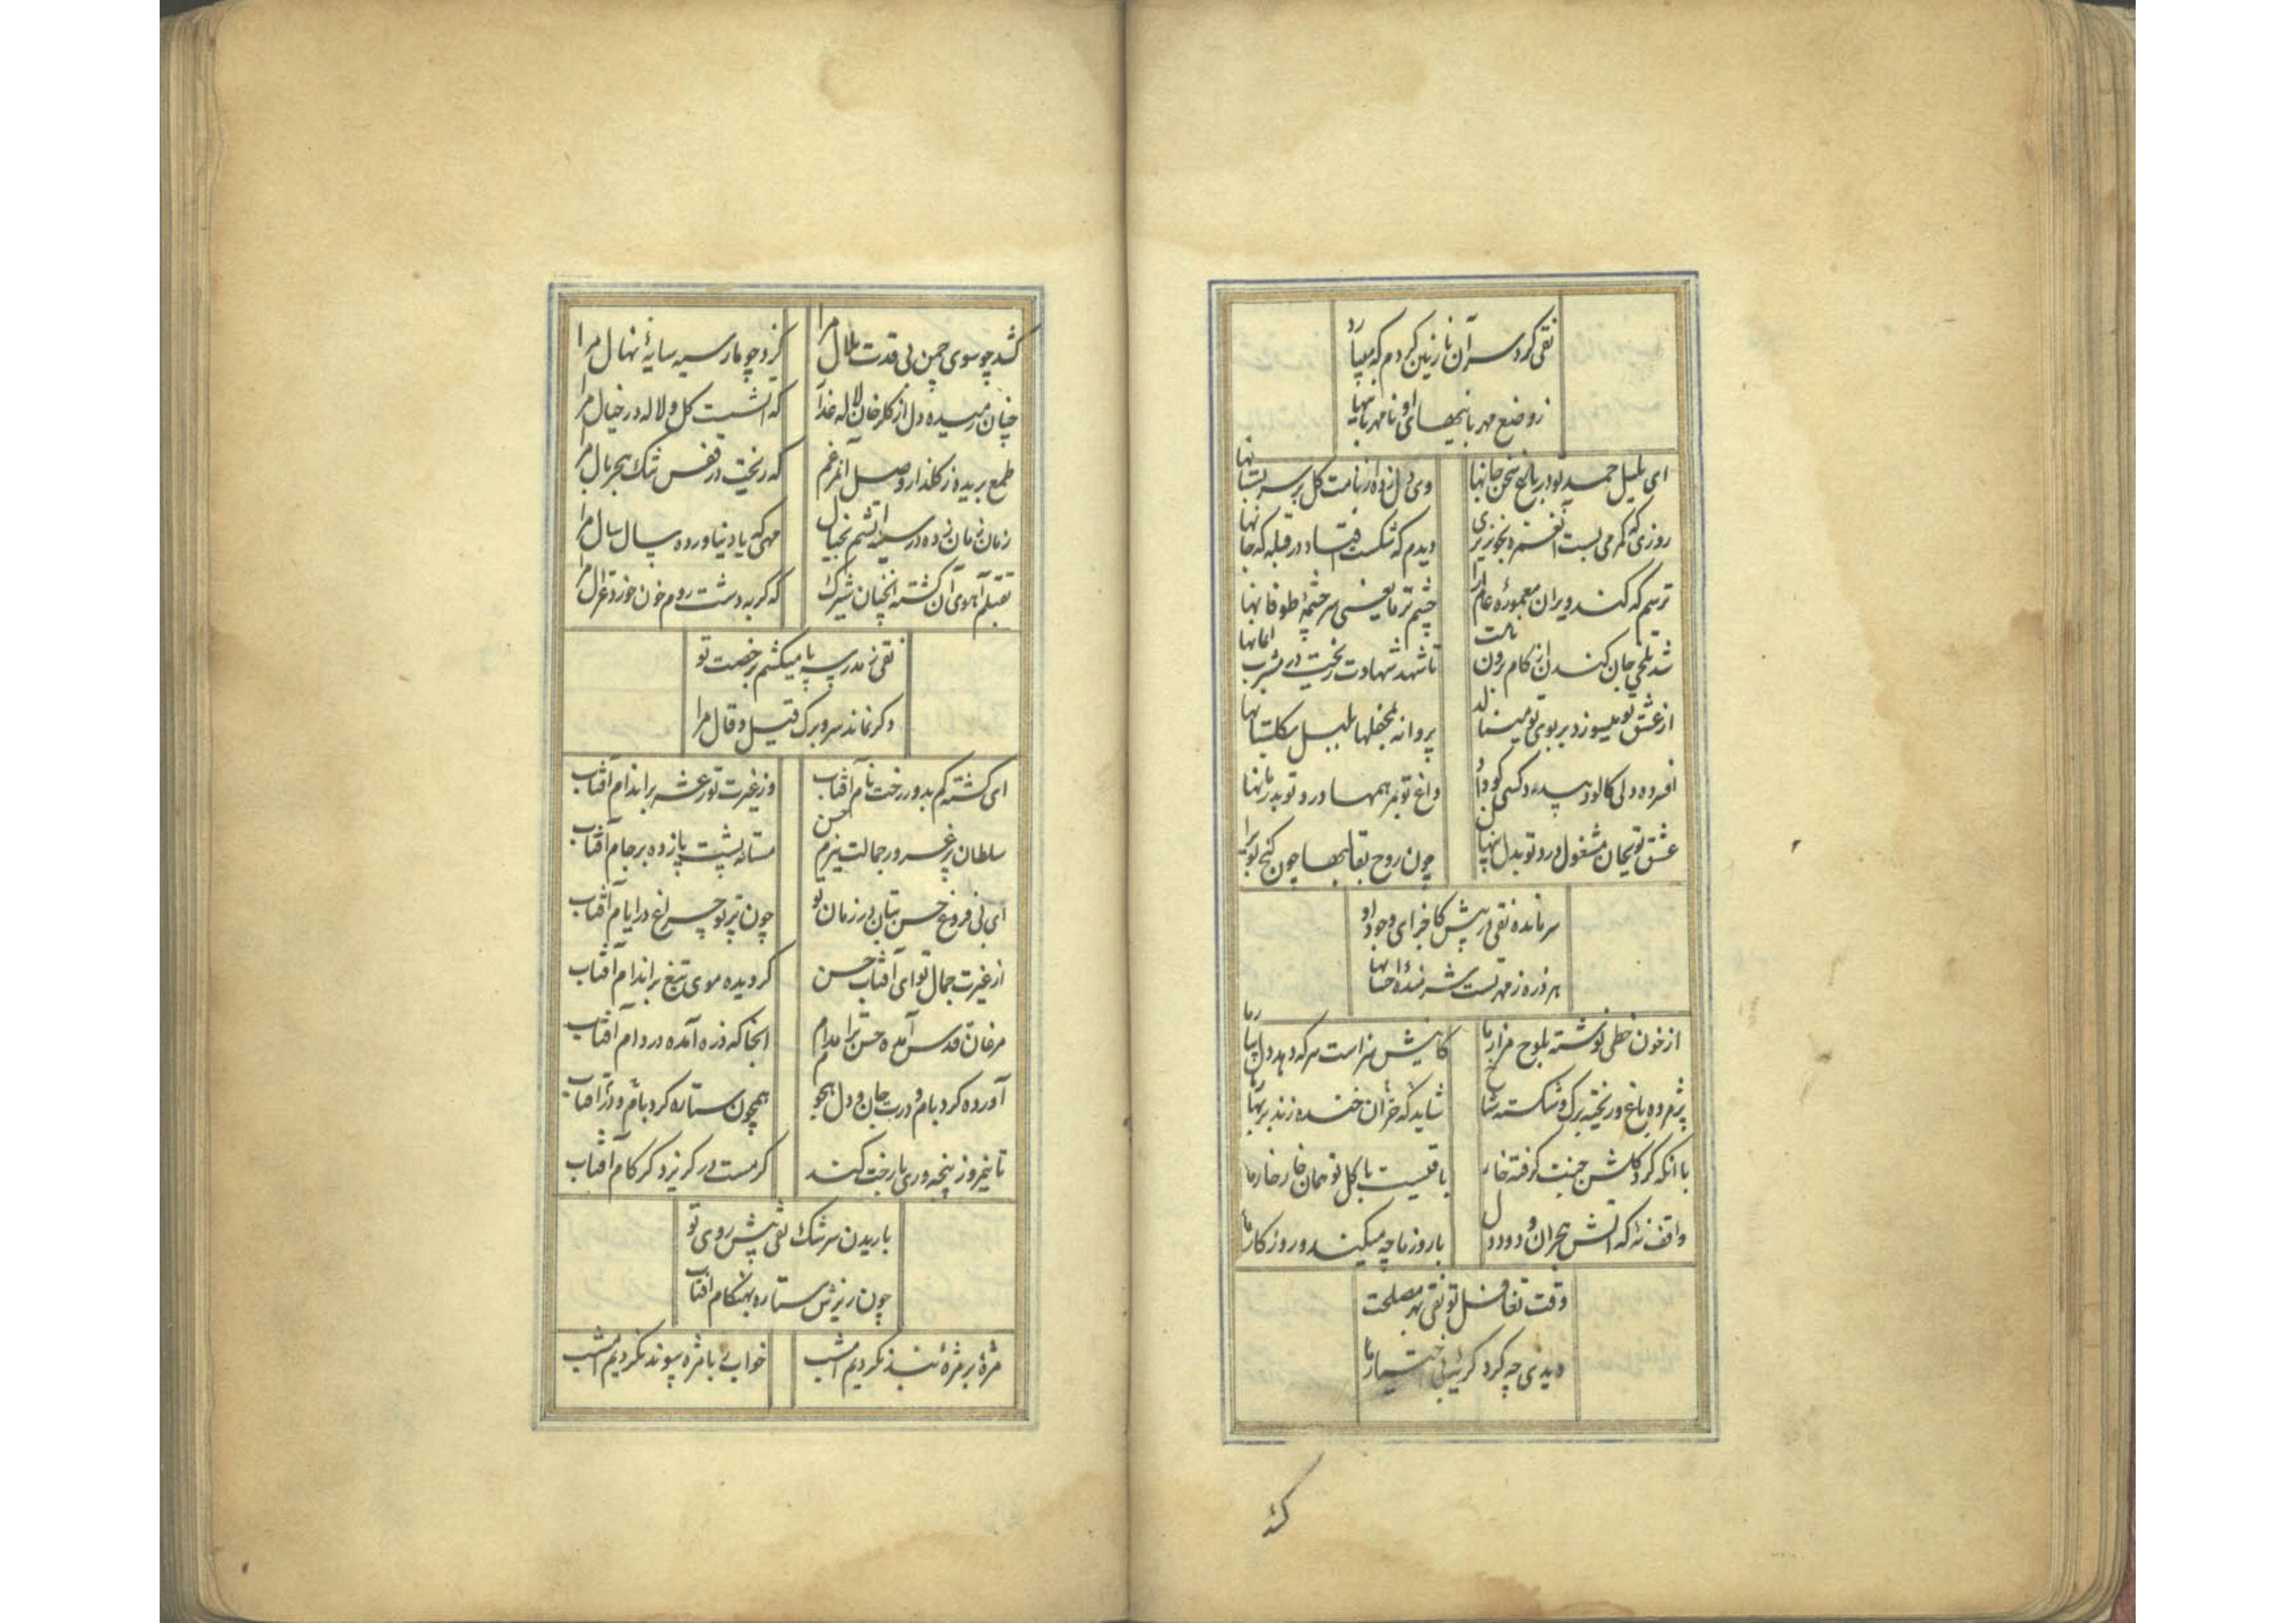 نقی کرد سر آن نازنین کردم که میبارد
ز وضع مهربانیهای او نامهربانیها
ای بلبل حمد تو در باغ سخن جانها
وی دل زده از نامت گل بر سر بستانها
روزی که کمر می بست آن غمزه بخونریزی
دیدم که شکست افتاد در قبله که جانها
ترسم که کند ویران معموره عالم را
چشم تر ما یعنی سرچشمه طوفانها
شد تلخی جان کندن از کام برون
تا شهد شهادت ریخت در مشرب
از عشق تو میسوزد بر بوی تو مینالد
پروانه بمحفلها بلبل بگلستانها
افسرده دلی کالود
داغ تو بمرهمها درد تو بدرمانها
عشق تو بجان مشغول درد تو بدل پنهان
چون روح بقالبها چون گنج
سر مانده نقی در پیش کاجزای وجود او
هر ذره ز مهر تست شرمنده احسانها
از خون خطی نوشته بلوح مزار ما
کاینش سزاست هر که دهد دل بیار ما
پژمرده باغ و ریخته برگ و شکسته شاخ
شاید که خزان خنده زند بر بهار ما
با آنکه گرد گلشن جنت گرفته خار
باقیست با گل تو همان خار خار ما
واقف نهٔ که آتش هجران و دود دل
با روز ما چه میکند و روزگار ما
وقت تغافل تو نقی بهر مصلحت
دیدی چه کرد گریه بی اختیار ما
کشد
کشد چو سوی چمن بی قدت ملال مرا
گزد چو مار سیه سایهٔ نهال مرا
چنان رمیده دل از گلرخان لاله عذار
که آتشست گل و لاله در خیال مرا
طمع بریده ز گلزار وصل
که ریخت در قفس تنگ هجر بال مرا
زمان زمان زده در سینه آتشم بخیال
مهی که یاد نیاورده سال سال مرا
بقتلم آهوی آن گشته آنچنان شیرک
که گر به دشت روم خون خورد غزال مرا
نقی ز مدرسه پا میکشم برخصت تو
دگر نماند سر و برگ قیل و قال مرا
ای گشته گم بدور رخت نام آفتاب
وز غیرت تو رعشه بر اندام آفتاب
سلطان پر غرور جمالت ببزم حسن
مستانه پشت پا زده بر جام آفتاب
ای بی فروغ حسن بتان در زمان تو
چون پرتو چراغ در ایام آفتاب
از غیرت جمال تو ای آفتاب حسن
گردیده موی تیغ بر اندام آفتاب
مرغان قدس آمده حسن ترا مدام
آنجا که ذره آمده در دام آفتاب
آورده گرد بام و درت جان و دل هجوم
همچون ستاره گرد بام و در آفتاب
تا نیمروز پنجه وری با رخت کند
گر مست در گریزد گر گام آفتاب
باریدن سرشک نقی پیش روی تو
چون ریزش ستاره بهنگام آفتاب
مژهٔ بر مژهٔ بند نکردیم امشب
خواب را با مژه پیوند نکردیم امشب